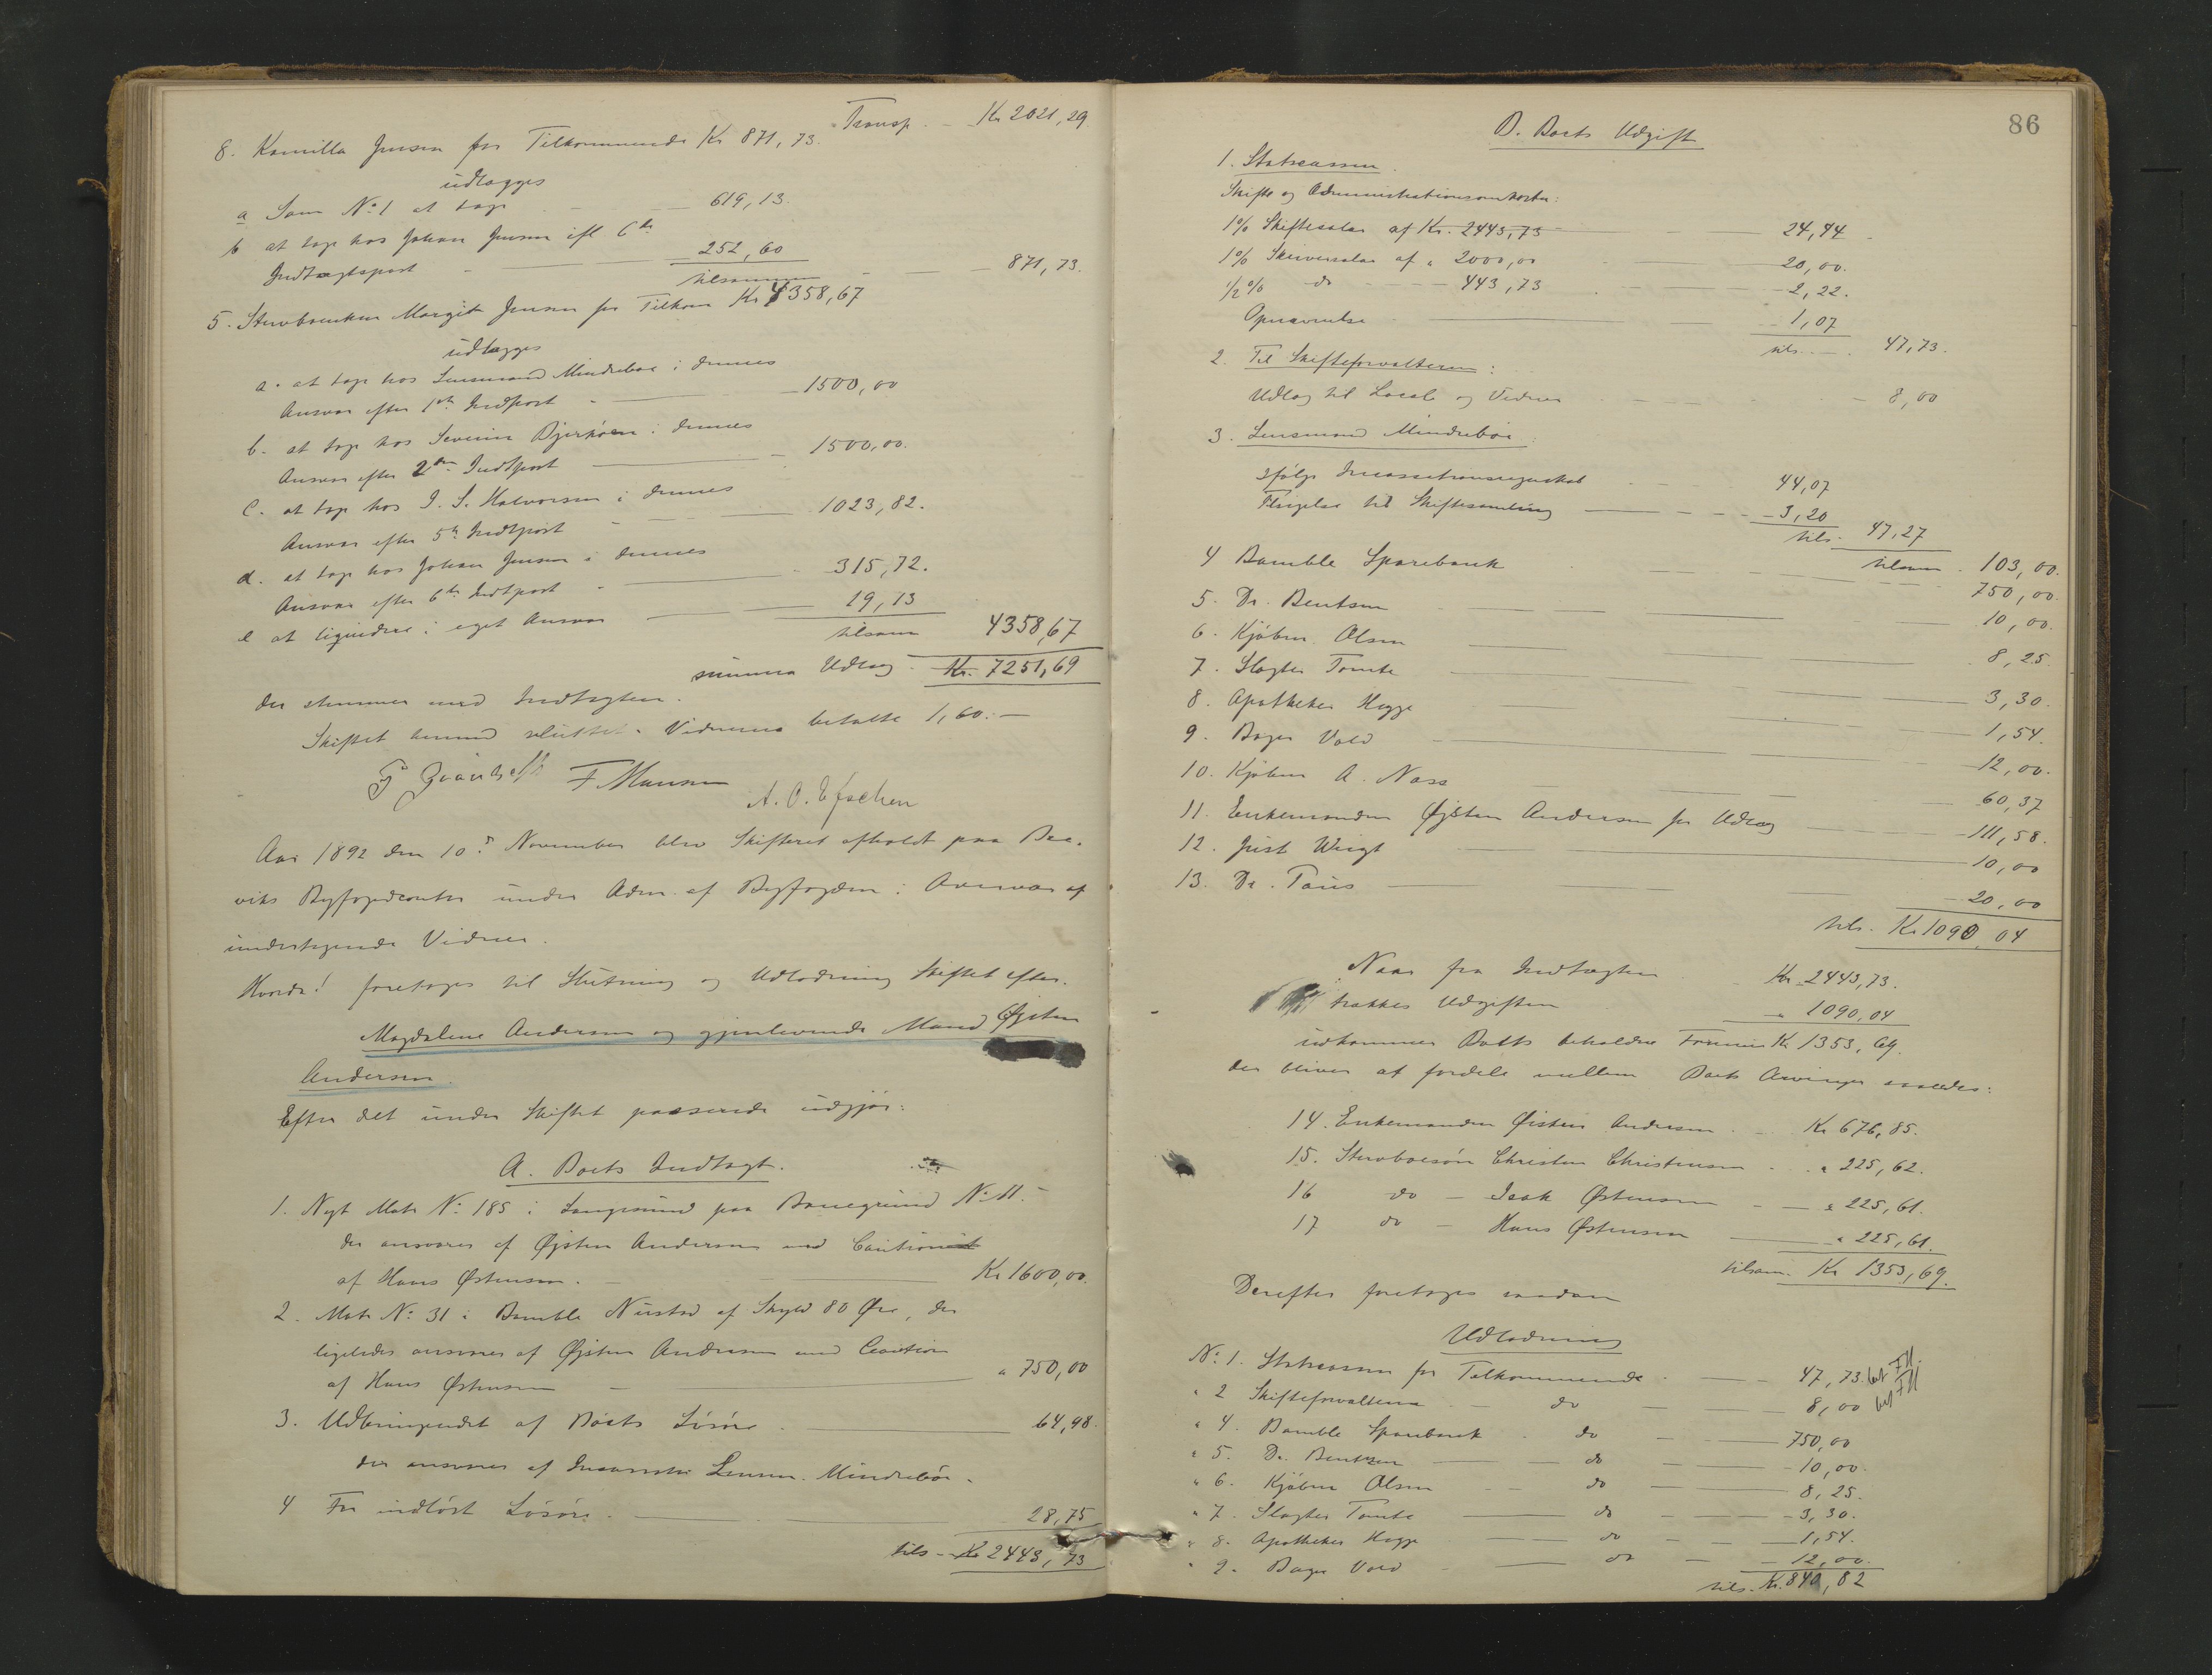 Transp. Kr 2021,29
8. Kamilla Jensen for Tilkommende Kr 871,73.
udlægges
a Som No 1 at tage 619,13.
b at tage hos Johan Jensen ifl 6te
Indtægtspost 252,60
tilsammen 871,73.
5. Stervboenken Margit Jensen for Tilkom Kr 4358,67
udlægges
a. at tage hos Lensmand Mindrebøe i dennes
Ansvar efter 1ste Indtpost 1500,00
b. at tage hos Severin Bjerkøen i dennes
Ansvar efter 2den Indtpost 1500,00.
c. at tage hos I. S. Halvorsen i dennes
Ansvar efter 5te Indtpost 1023,82.
d. at tage hos Johan Jensen i dennes
Ansvar efter 6te Indtpost 315,72.
e at liqvidere i eget Ansvar 19,13
tilsam 4358,67
summa Udlæg Kr. 7251,69
der stemmer med Indtægten.
Skiftet hermed sluttet. Vidnerne betalte 1,60.
F Hansen
Aar 1892 den 10de November blev Skifteret afholdt paa Bre-
viks Byfogedcontor under Adm. af Byfogden i Overvær af
undertegnede Vidner.
Hvorda! foretoges til Slutning og Udlodning Skiftet efter
Magdalene Andersen og gjenlevende Mand Øjsten
Andersen.
Efter det under Skiftet passerede udgjør:
A. Boets Indtægt.
1. Nyt Matr No 185 i Langesund paa Banegrund No 11.
der ansvares af Øjsten Andersen med Caution
af Hans Østensen. Kr 1600,00.
2. Matr No 31 i Bamble Nustad af Skyld 80 Øre, der
ligeledes ansvares af Øjsten Andersen med Caution
af Hans Østensen " 750,00
3. Udbringendet af Boets Løsøre 64,98.
der ansvares af Incassator Lensm. Mindrebøe.
4 For indløst Løsøre. 28,75
tils. Kr 2443,73
86
B. Boets Udgift
1. Statscassen.
Skifte og Administrationsomkostn:
1% Skiftesalær af Kr. 2443,73 24,44
1% Skriversalær af " 2000,00 20,00.
1/2% do 443,73 2,22.
Opnævnelse 1,07
tils. 47,73.
2. Til Skifteforvalteren:
Udlæg til Locale og Vidner 8,00
3. Lensmand Mindrebøe:
Ifølge Incassationsregnskab 44,07
Tilsigelse til Skiftesamling 3,20
tils. 47,27
tilsam. 103,00.
4 Bamble Sparebank 750,00.
5. Dr. Bentsen 10,00.
6. Kjøbm. Olsen 8,25
7. Slagter Tomte 3,30.
8. Apotheker Hegge 1,54.
9. Bager Vold 12,00.
10. Kjøbm A. Næss 60,37
11. Enkemanden Øjsten Andersen for Udlæg 111,58.
12. Just Wiigt 10,00
13. Dr. Taus 20,00
tils. Kr 1090,04
Naar fra Indtægten Kr. 2443,73.
trækkes Udgiften " 1090,04
udkommer Boets beholdne Formue Kr 1353,69.
der bliver at fordele mellem Boets Arvinger saaledes:
14. Enkemanden Øisten Andersen Kr 676,85.
15. Stervboesøn Christen Christensen " 225,62.
16 do Isak Østensen " 225,61.
17 do Hans Østensen " 225,61.
tilsam. Kr 1353,69.
Derefter foretoges saadan
Udlodning
No 1. Statscassen for Tilkommende 47,73. bet FH.
" 2 Skifteforvalteren do 8,00 bet FH
" 4. Bamble Sparebank do 750,00
" 5. Dr. Bentzen do 10,00.
" 6. Kjøbm Olsen do 8,25.
" 7. Slagter Tomte do 3,30.
" 8. Apotheker Hegge do 1,54.
" 9. Bager Vold do 12,00.
tils. Kr. 840,82